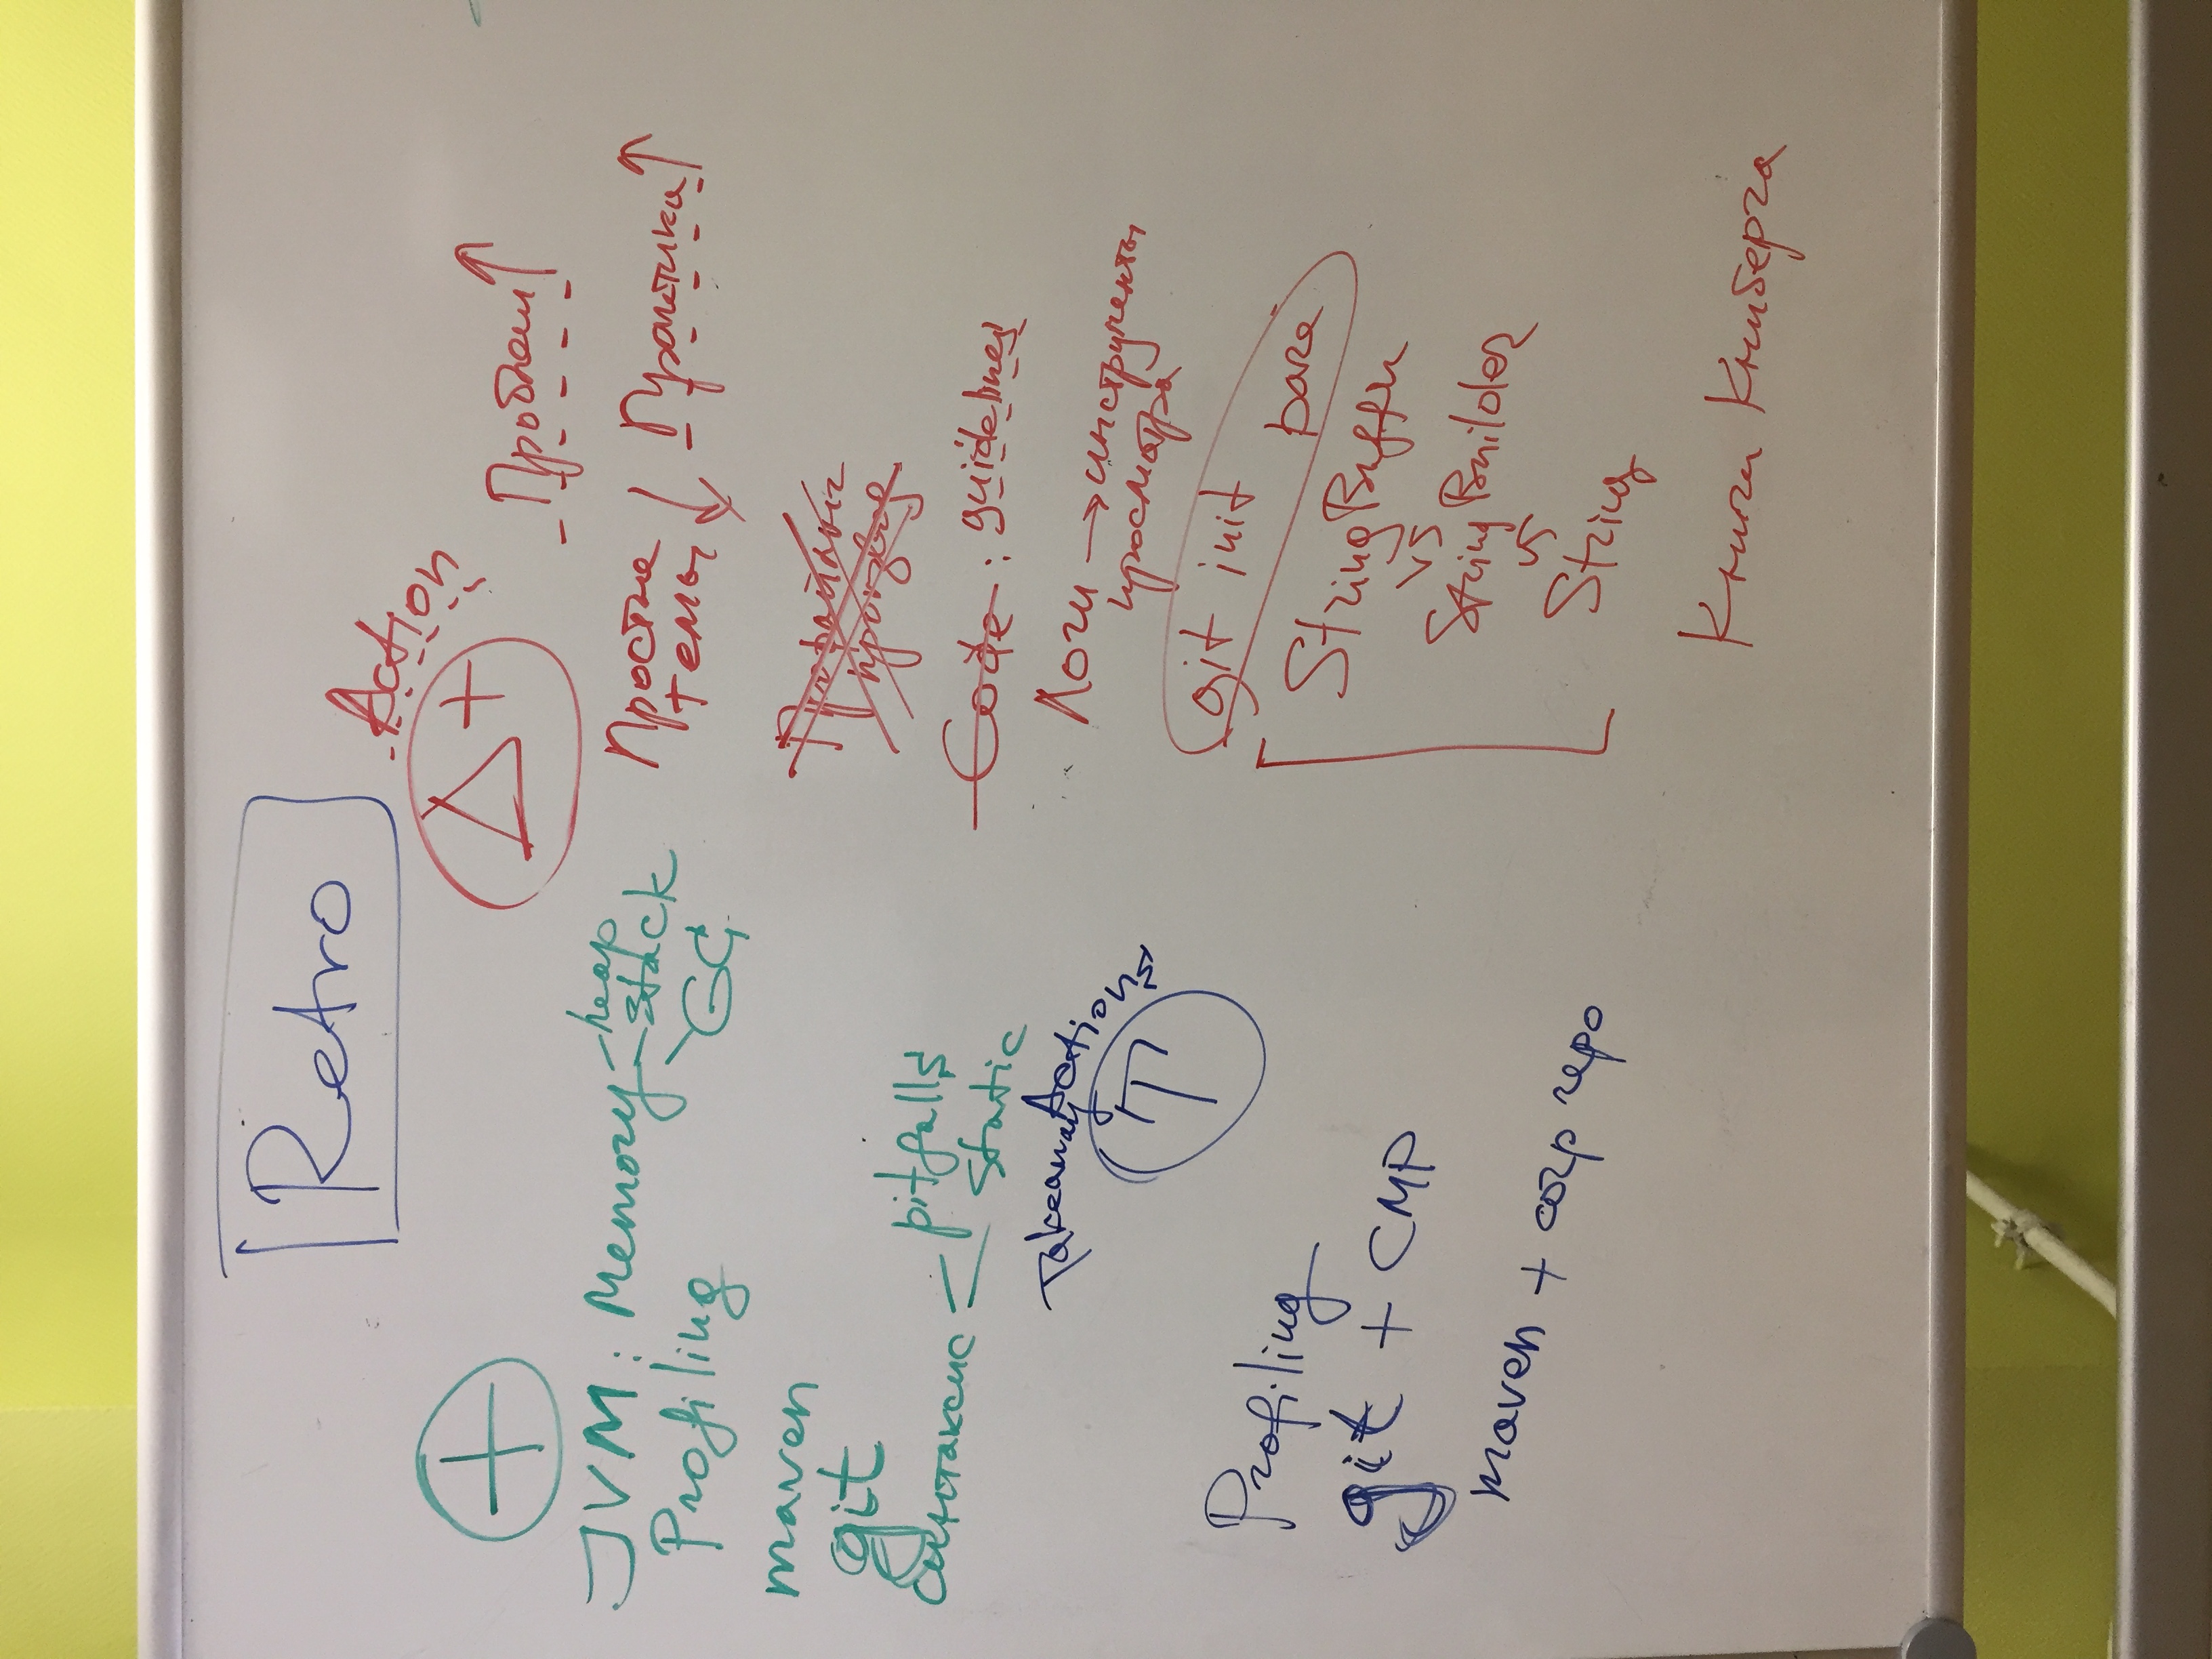 Retro
+
JVM: Memory
heap
stack
GC
Profiling
maven
git
синтаксис
pitfalls
static
Takeaway Actions
T
Profiling
git + CMP
maven + corp repo
Action
Δ+
Проблем ↑
Простые темы ↓
Практика ↑
Профайлинг
производ
Code: guidelines
Логи → инструменты
просмотра
git init
bare
StringBuffer
vs
StringBuilder
vs
String
Книги Книберга